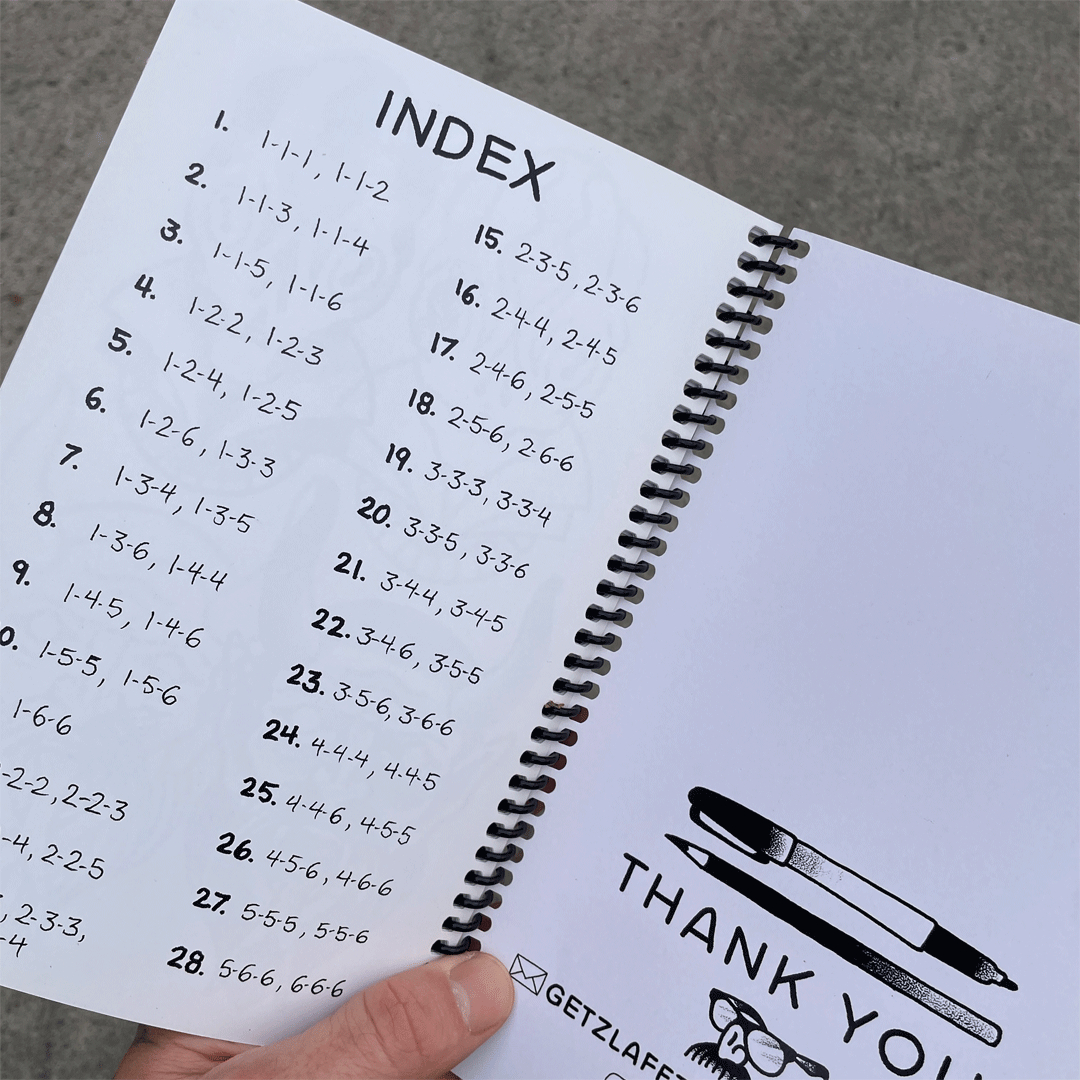 INDEX
1. 1-1-1, 1-1-2
2. 1-1-3, 1-1-4
3. 1-1-5, 1-1-6
4. 1-2-2, 1-2-3
5. 1-2-4, 1-2-5
6. 1-2-6, 1-3-3
7. 1-3-4, 1-3-5
8. 1-3-6, 1-4-4
9. 1-4-5, 1-4-6
0. 1-5-5, 1-5-6
1-6-6
-2-2, 2-2-3
-4, 2-2-5
, 2-3-3,
-4
15. 2-3-5, 2-3-6
16. 2-4-4, 2-4-5
17. 2-4-6, 2-5-5
18. 2-5-6, 2-6-6
19. 3-3-3, 3-3-4
20. 3-3-5, 3-3-6
21. 3-4-4, 3-4-5
22. 3-4-6, 3-5-5
23. 3-5-6, 3-6-6
24. 4-4-4, 4-4-5
25. 4-4-6, 4-5-5
26. 4-5-6, 4-6-6
27. 5-5-5, 5-5-6
28. 5-6-6, 6-6-6
THANK YOU
GETZLAFE